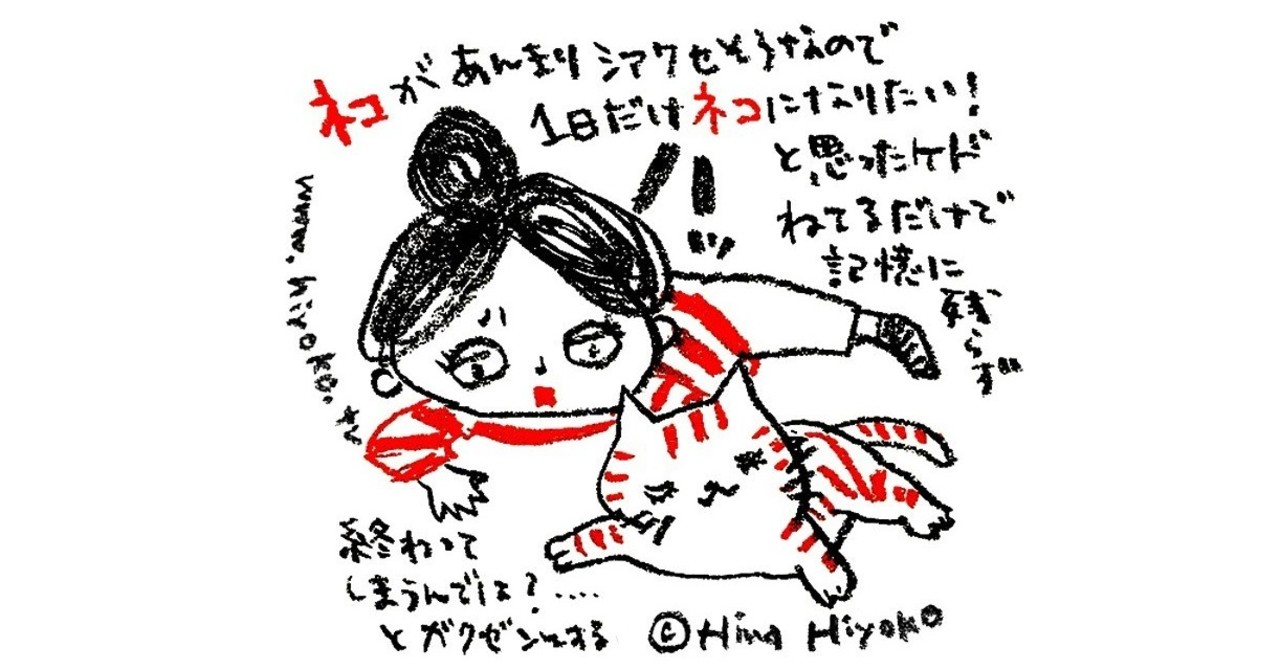 ネコがあんまりシアワセそうなので
1日だけネコになりたい!
と思ったケド
ねてるだけで
記憶に
残らず
終わって
しまうんでは?....
とガクゼンとする
www.hiyoko.tv
©Hina Hiyoko